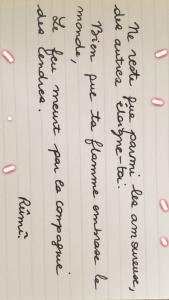 Ne reste que parmi les amoureux,
des autres éloigne-toi.
Bien que ta flamme embrase le
monde,
Le feu meurt par la compagnie
des cendres.
Rûmî